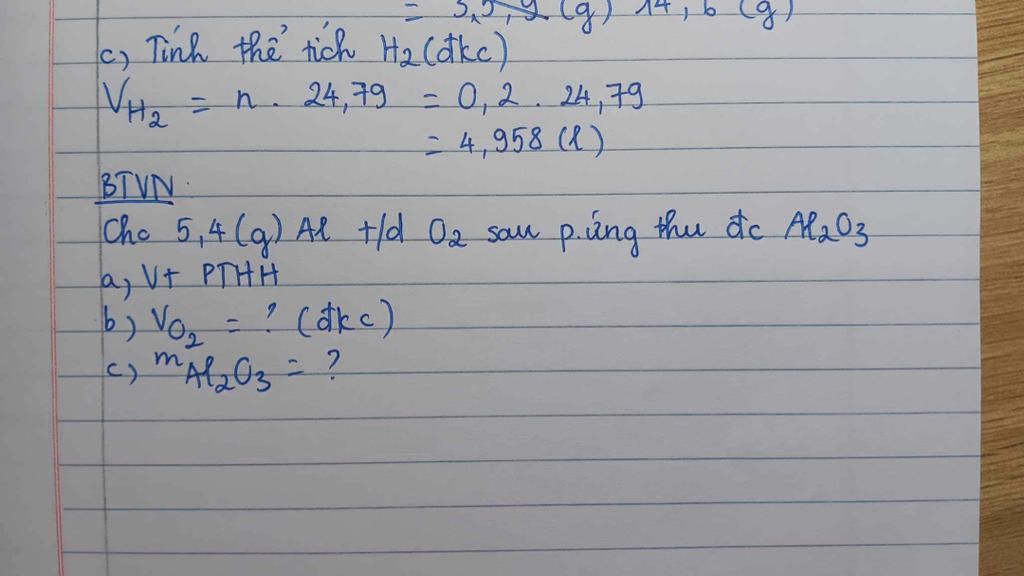 = (g) 14,6 (g)
c, Tính thể tích H2 (đkc)
VH2 = n . 24,79 = 0,2 . 24,79
= 4,958 (l)
BTVN
Cho 5,4 (g) Al t/d O2 sau p.ứng thu đc Al2O3
a, Vt PTHH
b) VO2 = ? (đkc)
c) mAl2O3 = ?